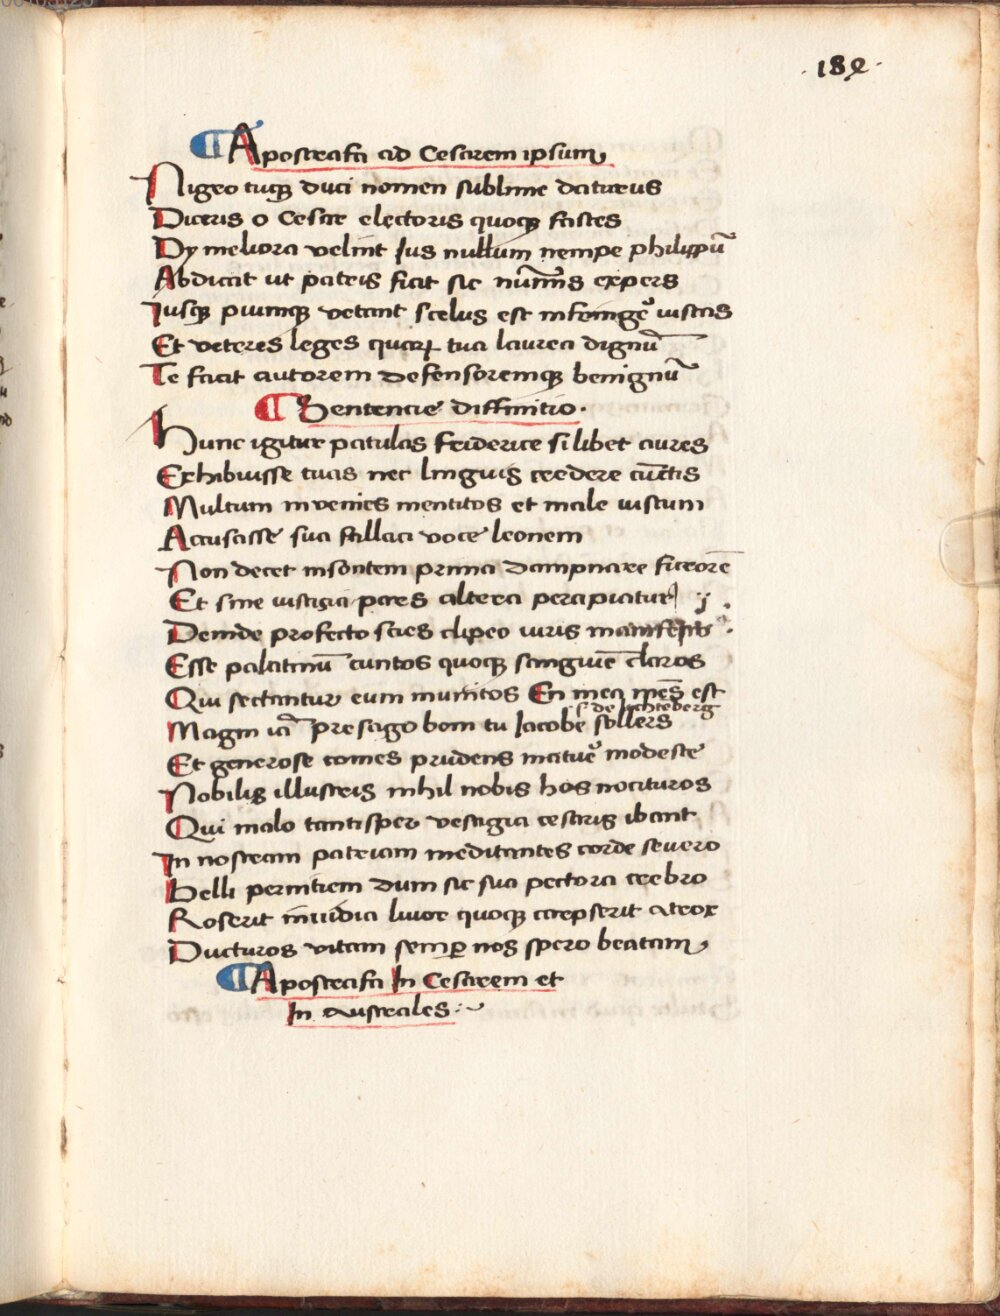 ·189·
Apostrafa ad Cesarem ipsum
Nigro tuoqꝫ duci nomen sublime daturus
Diceris o Cesar electoris quoqꝫ fastes
Dy meliora velint Jus nullum nempe philippū
Abdicat ut patris fuit sic nūmis expers
Jusqꝫ piumqꝫ vetant scelus est infringe᷑ iustas
Et veteres leges quaꝝ tua laurea dignū
Te facit autorem defensoremqꝫ benignū
Sentencie diffinitio·
Hunc igitur patulas friderice si libet aures
Exhibuisse tuas nec linguis credere cūctis
Multum invenies mentitos et male iustum
Accusasse sua fallaci voce leonem
Non decet insontem prima dampnare furorē
Et sine iusticia pars altera percipiatur
Deinde profecto scies clipeo iuris
Esse palatinū cuntos quoqꝫ sanguīe claros
Qui sectantur eum munitos En mea mēs est
s de lichteberg
Magni presago bom tu Jacobe sollers
Et generose comes prudens matur᷑ modeste
Nobilis illustris nihil nobis hos nocituros
Qui malo tantisper vestigia cesaris ibant
In nostram patriam meditantes corde severo
Belli perniciem dum sic sua pectora crebro
Roserit invidia livor quoqꝫ carpserit atrox
Ducturos vitam semꝑ nos spero beatam
Apostrafa In Cesarem et
In australes